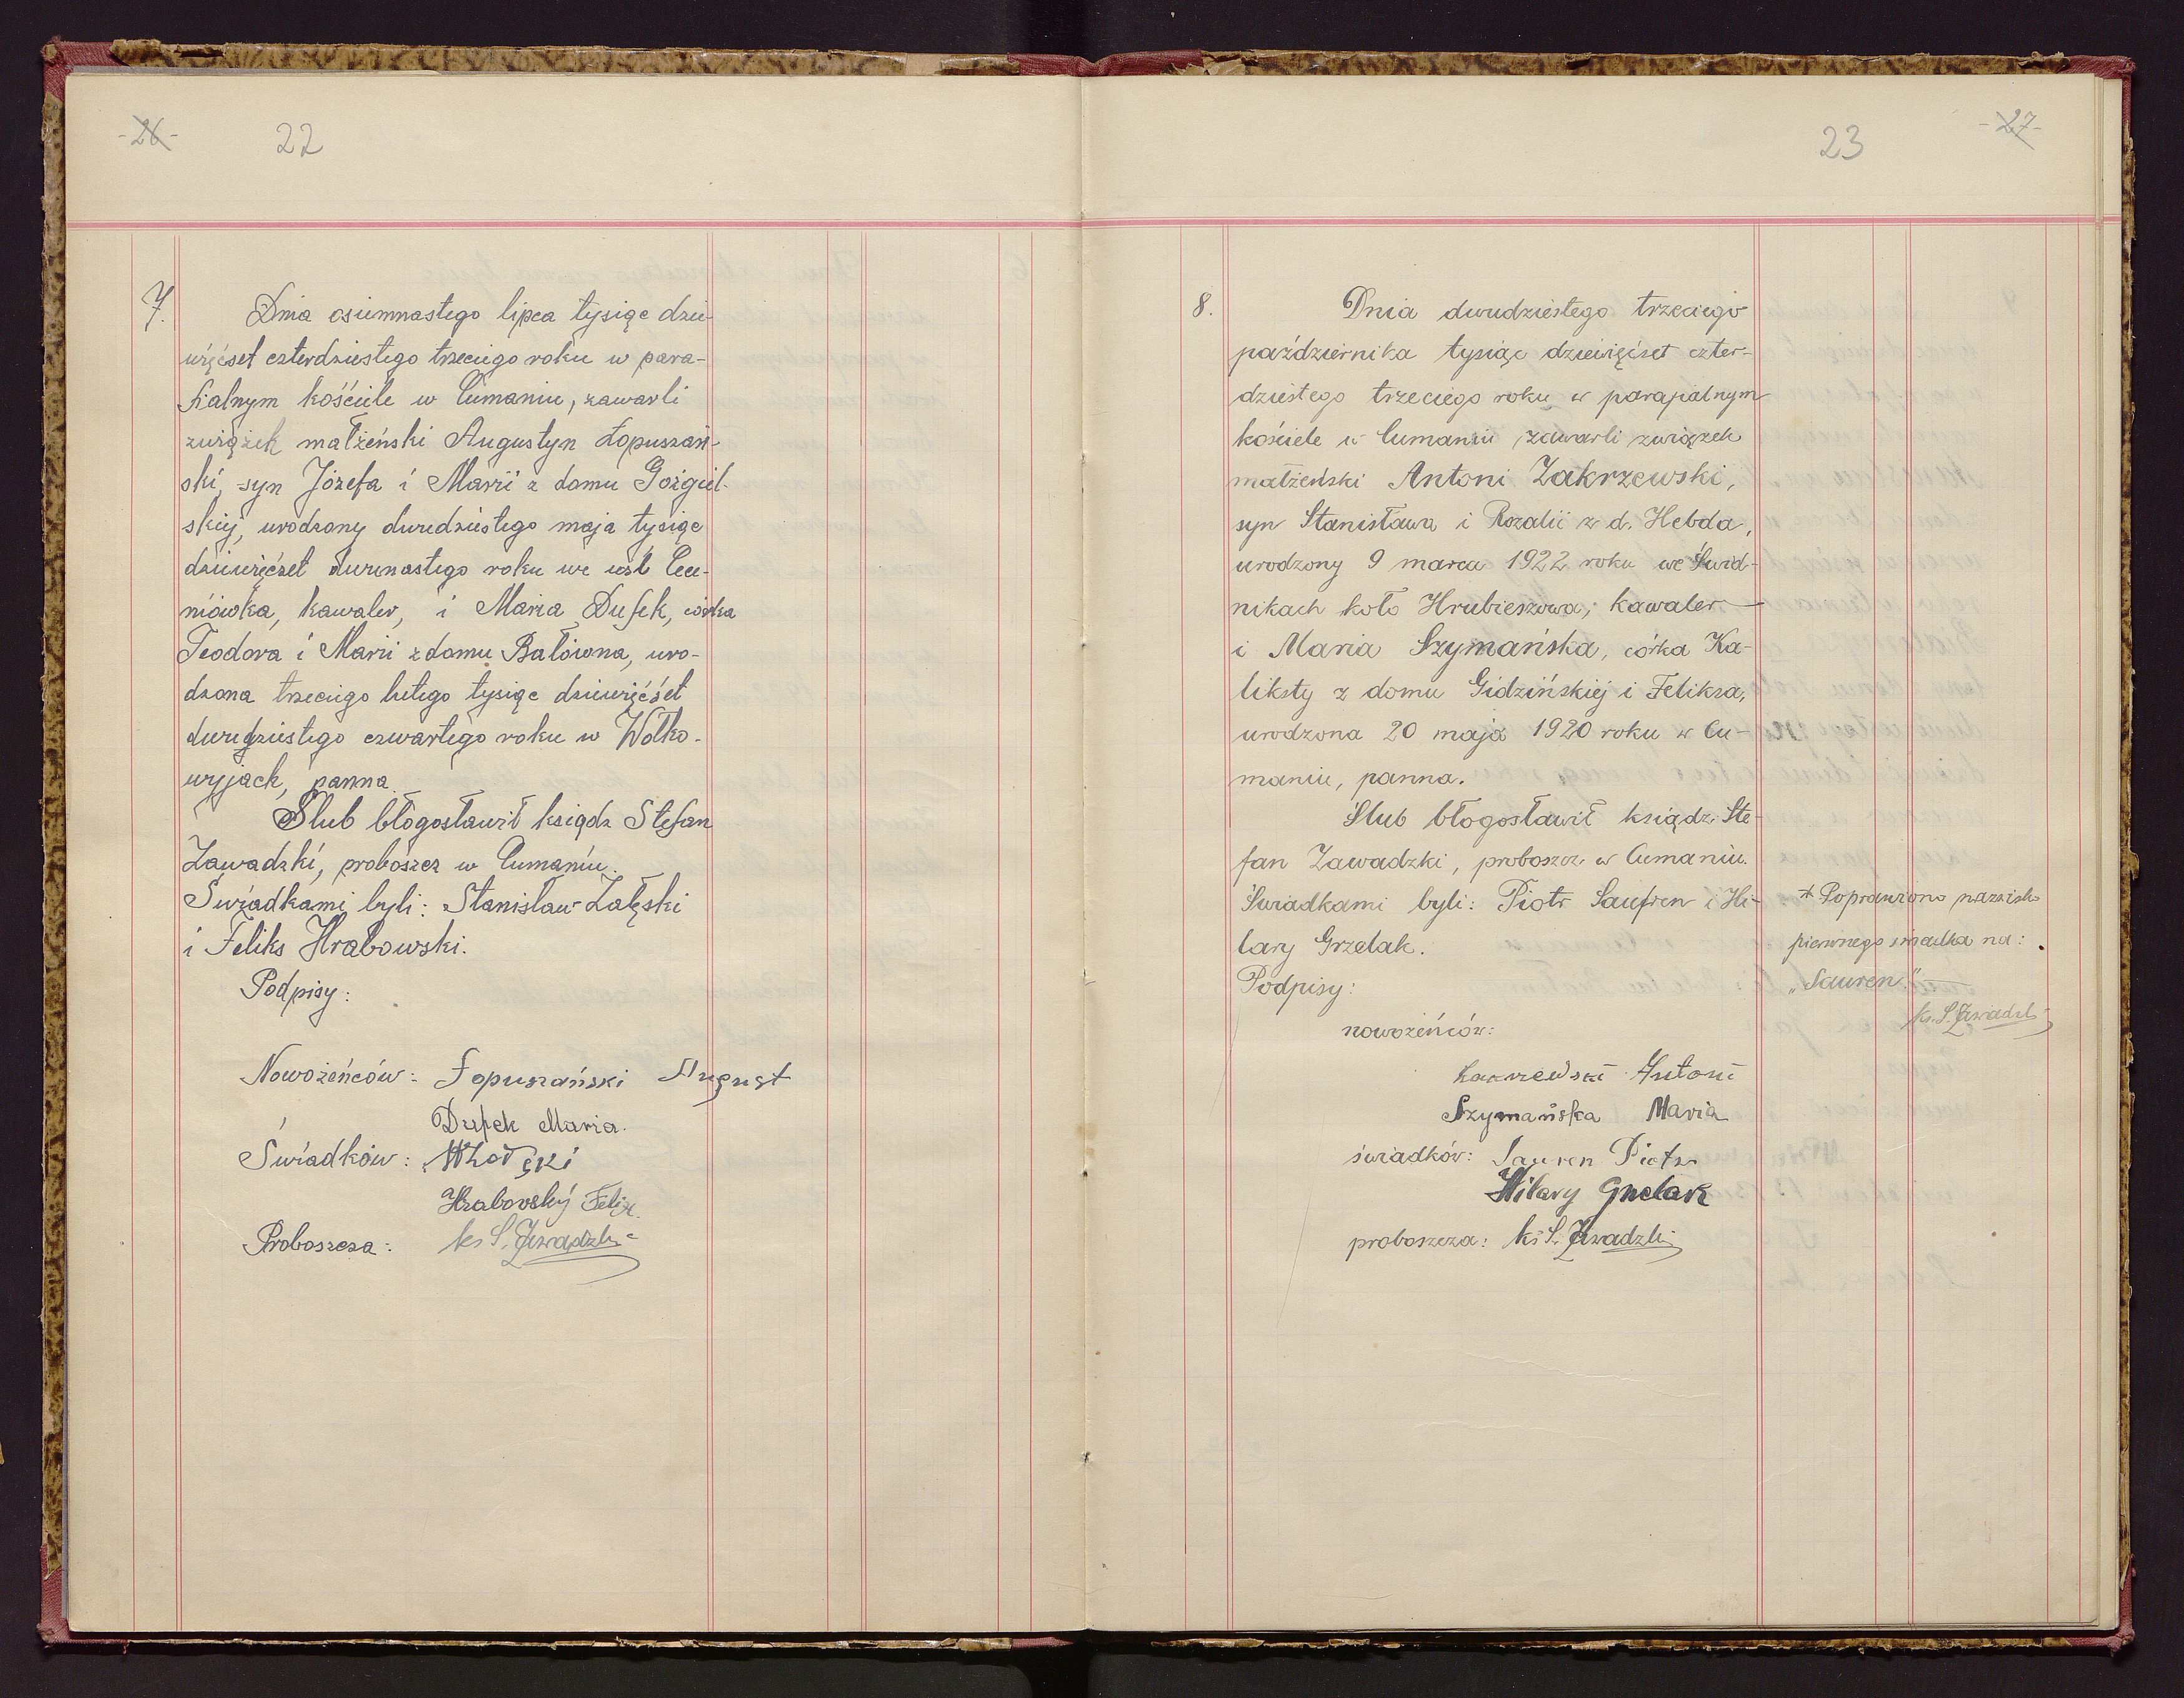 -26-
22
7.
Dnia osiemnastego lipca tysiąc dzie-
więćset czterdziestego trzeciego roku w para-
fialnym kościele w Cumaniu, zawarli
związek małżeński Augustyn Łopuszań-
ski, syn Józefa i Marii z domu Goźgiel-
skiej, urodzony dwudziestego maja tysiąc
dziewięćset dwunastego roku we wsi
niówka, kawaler, i Maria Dufek, córka
Teodora i Marii z domu Bałówna, uro-
dzona trzeciego lutego tysiąc dziewięćset
dwudziestego czwartego roku w Wołko-
wyjach, panna.
Ślub błogosławił ksiądz Stefan
Zawadzki, proboszcz w Cumaniu.
Świadkami byli: Stanisław Załęski
i Feliks Hrabowski.
Podpisy:
Nowożeńców: Łopuszański August
Dufek Maria.
Świadków:
Hrabovský Felix
Proboszcza: ks S. Zawadzki
23
-27-
8.
Dnia dwudziestego trzeciego
października tysiąc dziewięćset czter-
dziestego trzeciego roku w parafialnym
kościele w Cumaniu zawarli związek
małżeński Antoni Zakrzewski,
syn Stanisława i Rozalii z d. Hebda,
urodzony 9 marca 1922 roku we Świd-
nikach koło Hrubieszowa, kawaler
i Maria Szymańska, córka Ka-
liksty z domu Gidzińskiej i Feliksa,
urodzona 20 maja 1920 roku w Cu-
maniu, panna.
Ślub błogosławił ksiądz Ste-
fan Zawadzki, proboszcz w Cumaniu.
Świadkami byli: Piotr i Hi-
lary Grzelak.
Podpisy:
nowożeńców:
Zakrzewski Antoni
Szymańska Maria
świadków: Sauren Piotr
Hilary Grzelak
proboszcza: ks S. Zawadzki
+ Poprawiono nazwisko
pierwszego świadka na:
„Sauren."
ks. S. Zawadzki